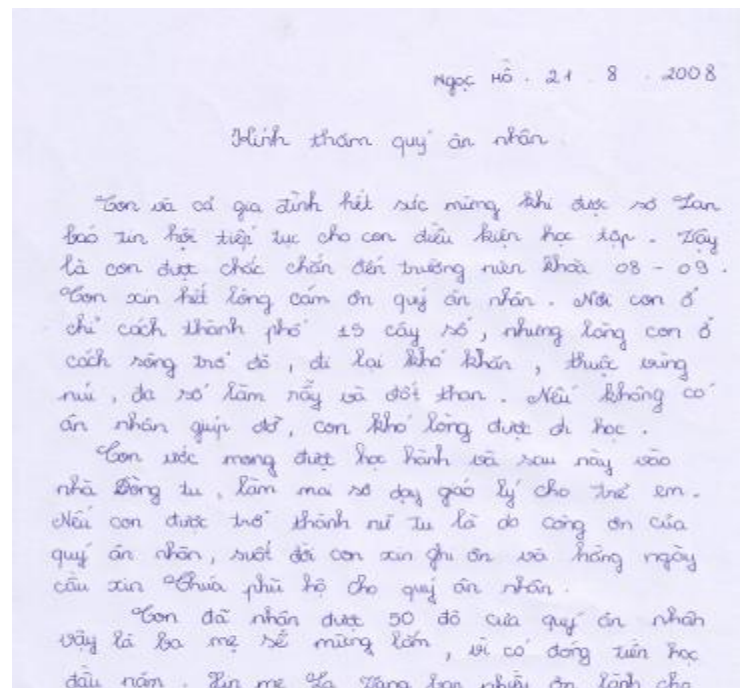 Ngọc Hồ . 21 . 8 . 2008
Kính thăm quý ân nhân .
Con và cả gia đình hết sức mừng khi được sơ Lan
báo tin hội tiếp tục cho con điều kiện học tập . Vậy
là con được chắc chắn đến trường niên khoá 08 - 09 .
Con xin hết lòng cám ơn quý ân nhân . Nơi con ở
chỉ cách thành phố 15 cây số , nhưng làng con ở
cách sông trở đò , đi lại khó khăn , thuộc vùng
núi , đa số làm rẫy và đốt than . Nếu không có
ân nhân giúp đỡ , con khó lòng được đi học .
Con ước mong được học hành và sau này vào
nhà Dòng tu , làm mai sơ dạy giáo lý cho trẻ em .
Nếu con được trở thành nữ tu là do công ơn của
quý ân nhân , suốt đời con xin ghi ơn và hằng ngày
cầu xin Chúa phù hộ cho quý ân nhân .
Con đã nhận được 50 đô của quý ân nhân
vậy là ba mẹ sẽ mừng lắm , vì có đóng tiền học
đầu năm . Xin mẹ La Vang ban nhiều ơn lành cho